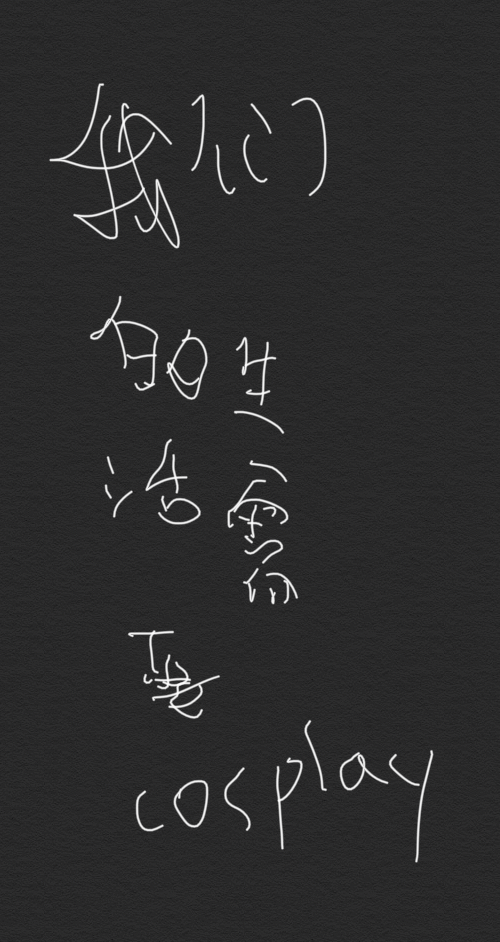 我们
的生
活需
要
cosplay